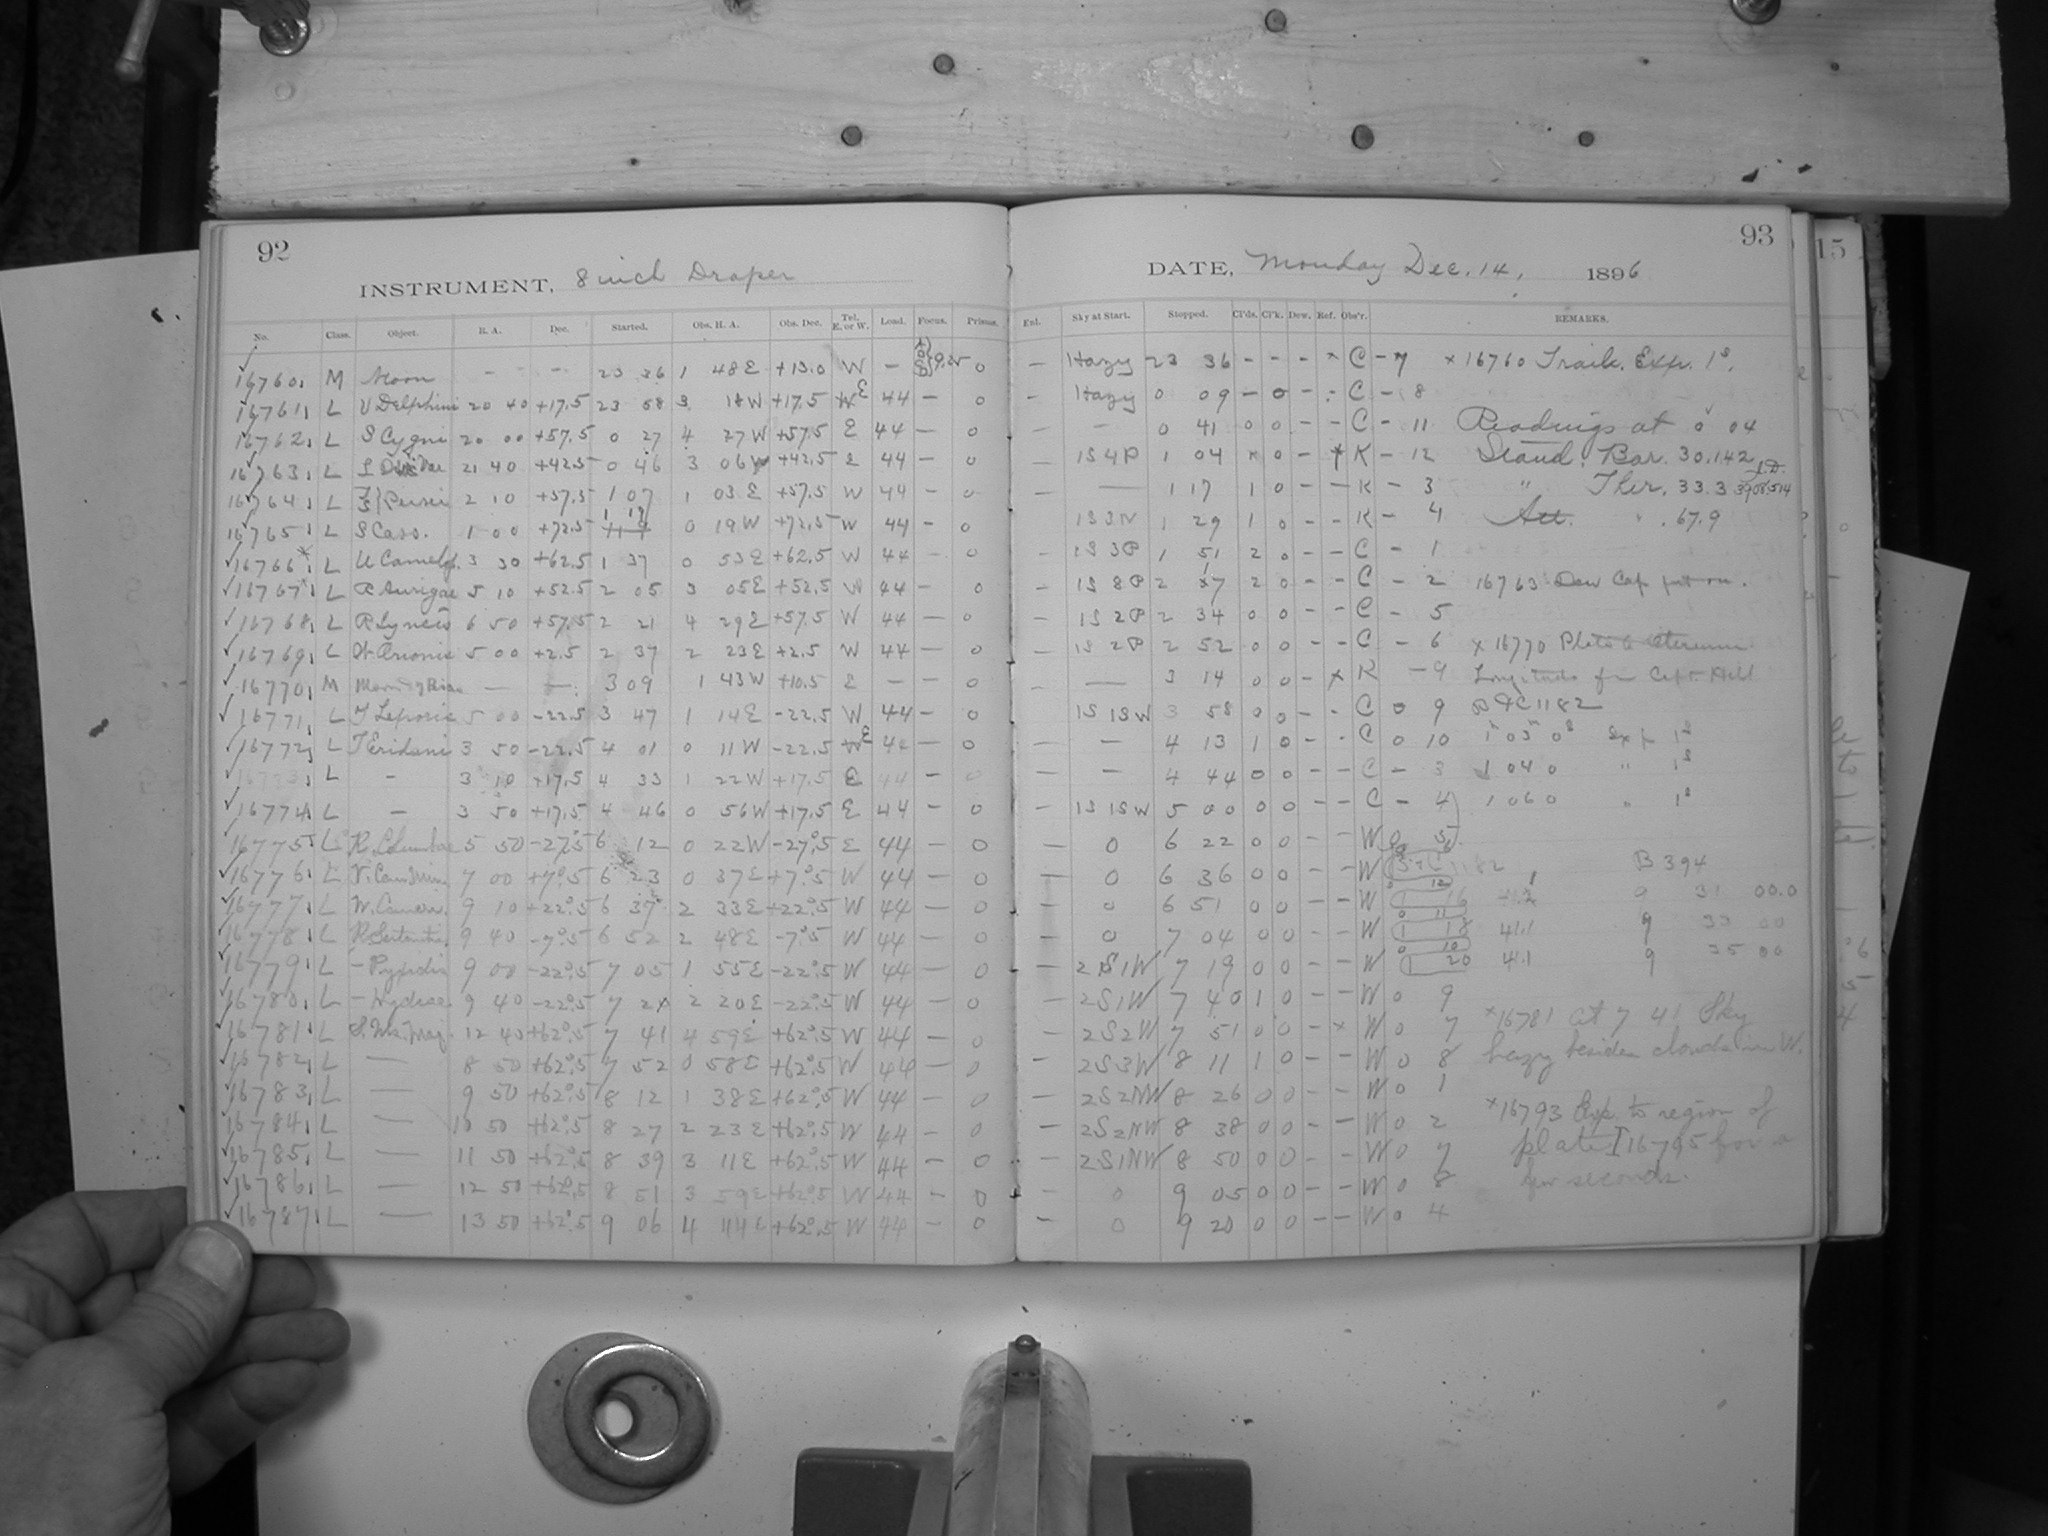 92
INSTRUMENT, 8 inch Draper
No. Class. Object. R. A. Dec. Started. Obs. H. A. Obs. Dec. Tel. E. or W. Load. Focus. Prisms.
16760 M Moon — — — 23 36 1 48E +13.0 W — 0
16761 L V Delphini 20 40 +17.5 23 58 3 18W +17.5 E 44 — 0
16762 L S Cygni 20 00 +57.5 0 27 4 27W +57.5 E 44 — 0
16763 L 21 40 +42.5 0 46 3 06W +42.5 E 44 — 0
16764 L Persei 2 10 +57.5 1 07 1 03E +57.5 W 44 — 0
16765 L S Cass. 1 00 +72.5 1 19 0 19W +72.5 W 44 — 0
16766 L U Camelop. 3 30 +62.5 1 37 0 53E +62.5 W 44 — 0
16767 L R Aurigae 5 10 +52.5 2 05 3 05E +52.5 W 44 — 0
16768 L R Lyncis 6 50 +57.5 2 21 4 29E +57.5 W 44 — 0
16769 L W Orionis 5 00 +2.5 2 37 2 23E +2.5 W 44 — 0
16770 M — — 3 09 1 43W +10.5 E — — 0
16771 L T Leporis 5 00 -22.5 3 47 1 14E -22.5 W 44 — 0
16772 L T Eridani 3 50 -22.5 4 01 0 11W -22.5 E 44 — 0
16773 L — 3 10 +17.5 4 33 1 22W +17.5 E 44 — 0
16774 L — 3 50 +17.5 4 46 0 56W +17.5 E 44 — 0
16775 L R. Columbae 5 50 -27.5 6 12 0 22W -27.5 E 44 — 0
16776 L V. Can. Min. 7 00 +7.5 6 23 0 37E +7.5 W 44 — 0
16777 L W. Cancri. 9 10 +22.5 6 37 2 33E +22.5 W 44 — 0
16778 L 9 40 -7.5 6 52 2 48E -7.5 W 44 — 0
16779 L — Pyxidis 9 00 -22.5 7 05 1 55E -22.5 W 44 — 0
16780 L — Hydrae 9 40 -22.5 7 2 20E -22.5 W 44 — 0
16781 L S. Urs. Maj. 12 40 +62.5 7 41 4 59E +62.5 W 44 — 0
16782 L — 8 50 +62.5 7 52 0 58E +62.5 W 44 — 0
16783 L — 9 50 +62.5 8 12 1 38E +62.5 W 44 — 0
16784 L — 10 50 +62.5 8 27 2 23E +62.5 W 44 — 0
16785 L — 11 50 +62.5 8 39 3 11E +62.5 W 44 — 0
16786 L — 12 50 +62.5 8 51 3 59E +62.5 W 44 — 0
16787 L — 13 50 +62.5 9 06 4 44E +62.5 W 44 — 0
93
DATE, Monday Dec. 14, 1896
Enl. Sky at Start. Stopped. Cl'ds. Cl'k. Dew. Ref. Obs'r. REMARKS.
— Hazy 23 36 - - - x C - 7 x 16760 Trail. Exp. 1s.
— Hazy 0 09 - 0 - - C - 8
— — 0 41 0 0 - - C - 11 Readings at 0 04
— 1S4P 1 04 x 0 - x K - 12 Stand. Bar. 30.142
— — 1 17 1 0 - - K - 3 " Ther. 33.3
— 1S3N 1 29 1 0 - - K - 4 Att. " 67.9
— 1S3P 1 51 2 0 - - C - 1
— 1S8P 2 17 2 0 - - C - 2 16763 Dew Cap put on.
— 1S2P 2 34 0 0 - - C - 5
— 1S2P 2 52 0 0 - - C - 6 x 16770 Plate to determine
— — 3 14 0 0 - x K - 9 Longitude for Capt. Hill
— 1S1SW 3 58 0 0 - - C 0 9 B+C 1182
— — 4 13 1 0 - - C 0 10 1h 03m 0s Exp 1s
— — 4 44 0 0 - - C - 3 1 04 0 " 1s
— 1S1SW 5 00 0 0 - - C - 4 1 06 0 " 1s
— 0 6 22 0 0 - - W 0 5
— 0 6 36 0 0 - - W 0 6 1182 B 394
— 0 6 51 0 0 - - W 0 12 1 16 9 31 00.0
— 0 7 04 0 0 - - W 0 11 1 18 41.1 9 33 00
— 2S1W 7 19 0 0 - - W 0 10 1 20 41.1 9 35 00
— 2S1W 7 40 1 0 - - W 0 9
— 2S2W 7 51 0 0 - x W 0 7 x16781 at 7 41 Sky
— 2S3W 8 11 1 0 - - W 0 8 hazy besides clouds in W.
— 2S2NW 8 26 0 0 - - W 0 1
— 2S2NW 8 38 0 0 - - W 0 2 x16793 Exp. to region of
— 2S1NW 8 50 0 0 - - W 0 7 plate I 16795 for a
— 0 9 05 0 0 - - W 0 8 few seconds.
— 0 9 20 0 0 - - W 0 4
15